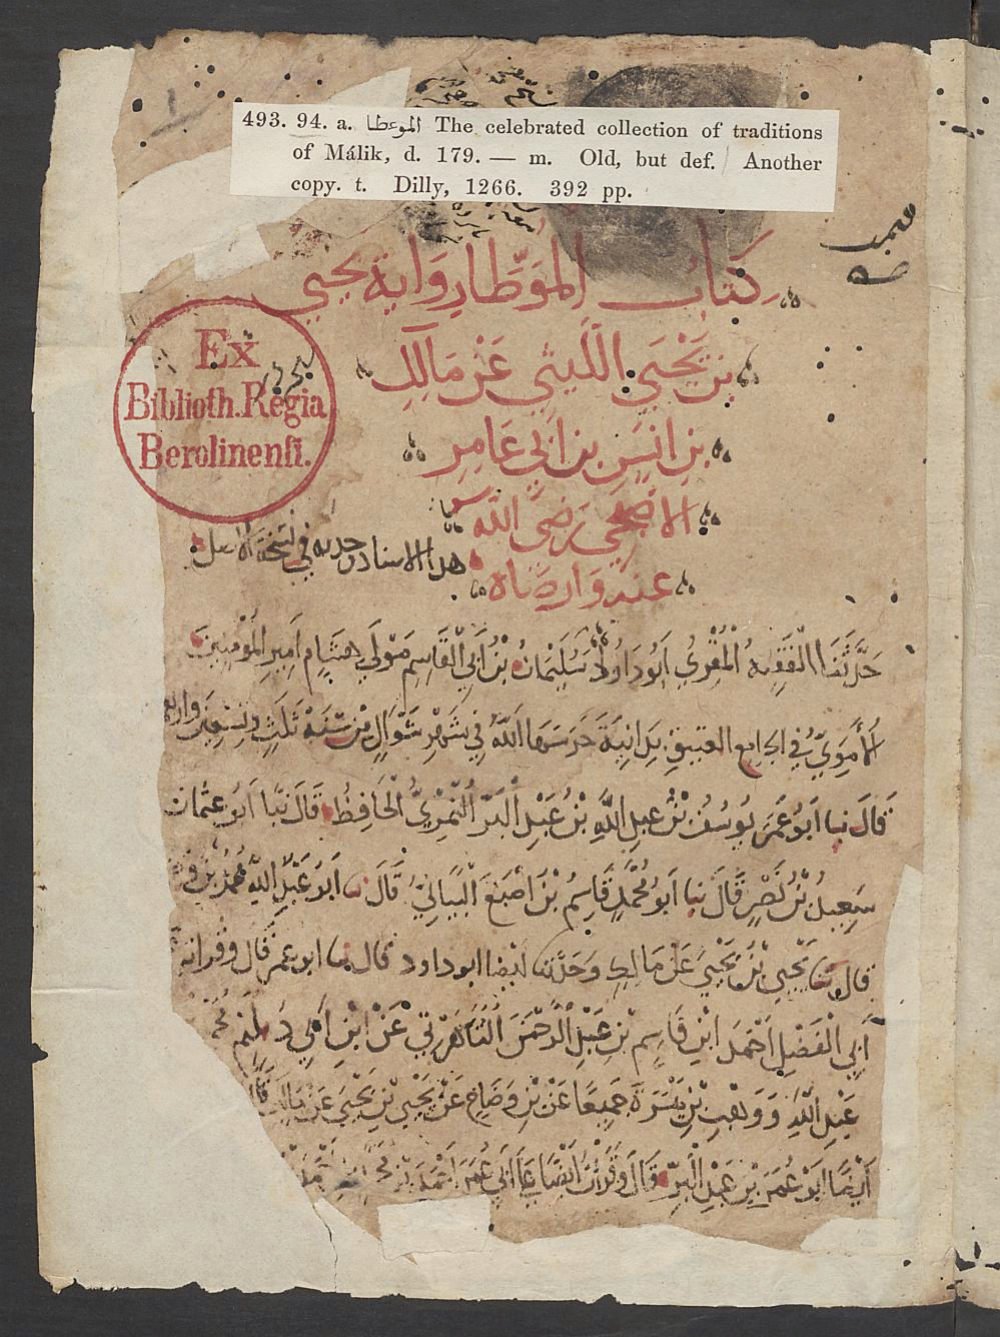 493. 94. a. الموءطا The celebrated collection of traditions
of Málik, d. 179. — m. Old, but def. Another
copy. t. Dilly, 1266. 392 pp.
كتاب الموطا رواية يحيى
بن يحيى الليثي عن مالك
بن انس بن ابي عامر
الاصبحي رضى الله
عنه وارضاه
Ex
Biblioth. Regia
Berolinensi.
هذا الاسناد وجدته في نسخة الاصل
حدثنا الفقيه المقري ابو داود سليمان بن ابي القاسم مولى هشام امير المومنين
الأموي في الجامع العتيق ببلنسية حرسها الله في شهر شوال من سنة ثلث وتسعين واربع
قال نبا ابو عمر يوسف بن عبد الله بن عبد البر النمري الحافظ قال نبا ابو عثمان
سعيد بن نصر قال نبا ابو محمد قاسم بن اصبغ البياني قال نا ابو عبد الله محمد بن
قال نا يحيى بن يحيى عن مالك وحدثنا ايضا ابو داود قال نا ابو عمر قال وقراته
ابي الفضل احمد ابن قاسم بن عبد الرحمن التاهرتي عن ابن ابي دليم
عبد الله ووهب بن مسرة جميعا عن بن وضاح عن يحيى بن يحيى عن مالك قال
ابو عمر بن عبد البر قال وقرأت ايضا على ابي عمر احمد بن